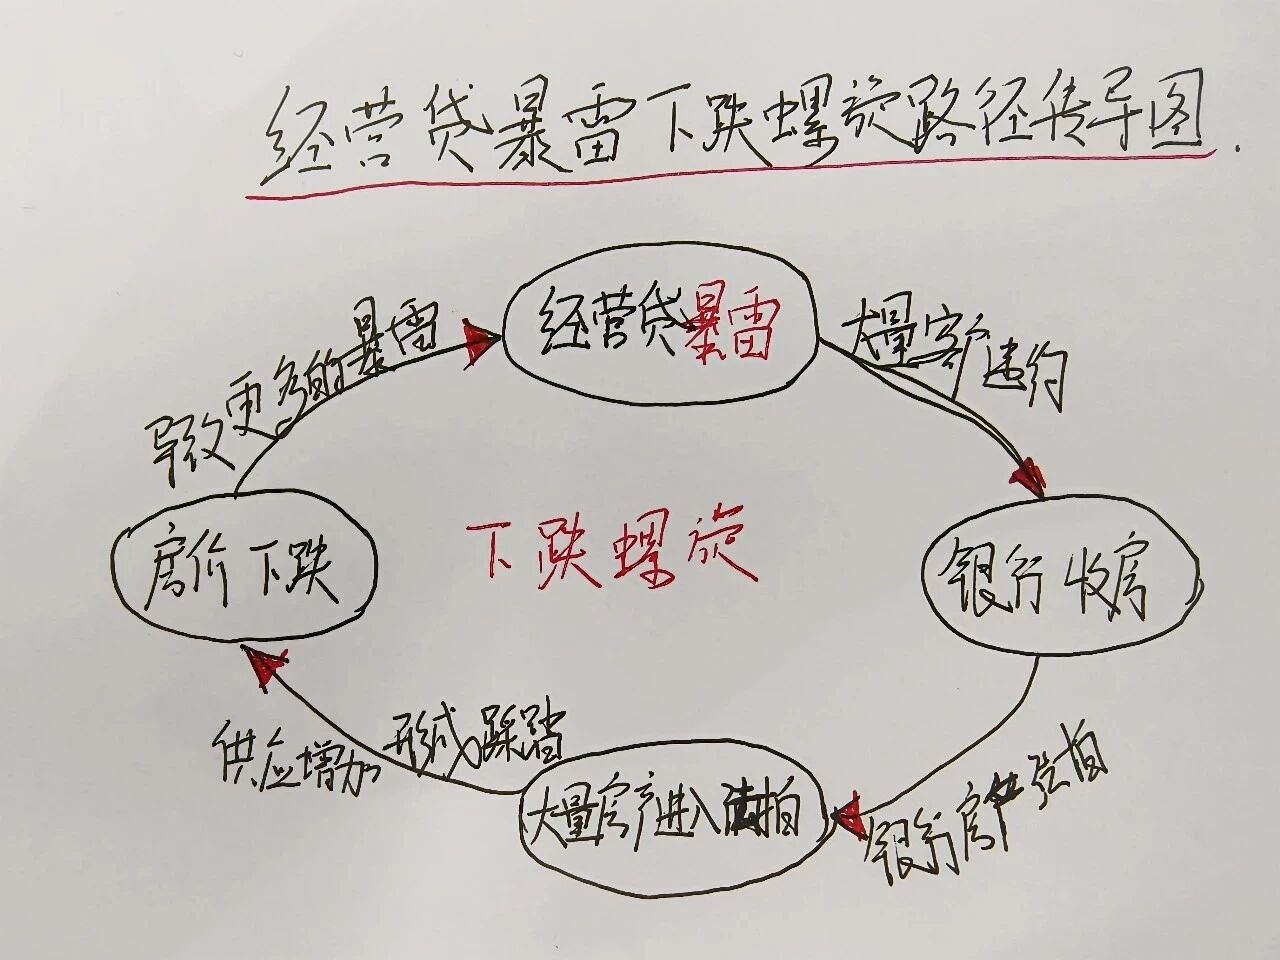 经营贷暴雷下跌螺旋路径传导图.
经营贷暴雷
大量客户违约
导致更多的暴雷
下跌螺旋
房价下跌
银行收房
供应增加 形成踩踏
大量房产进入法拍
银行房产